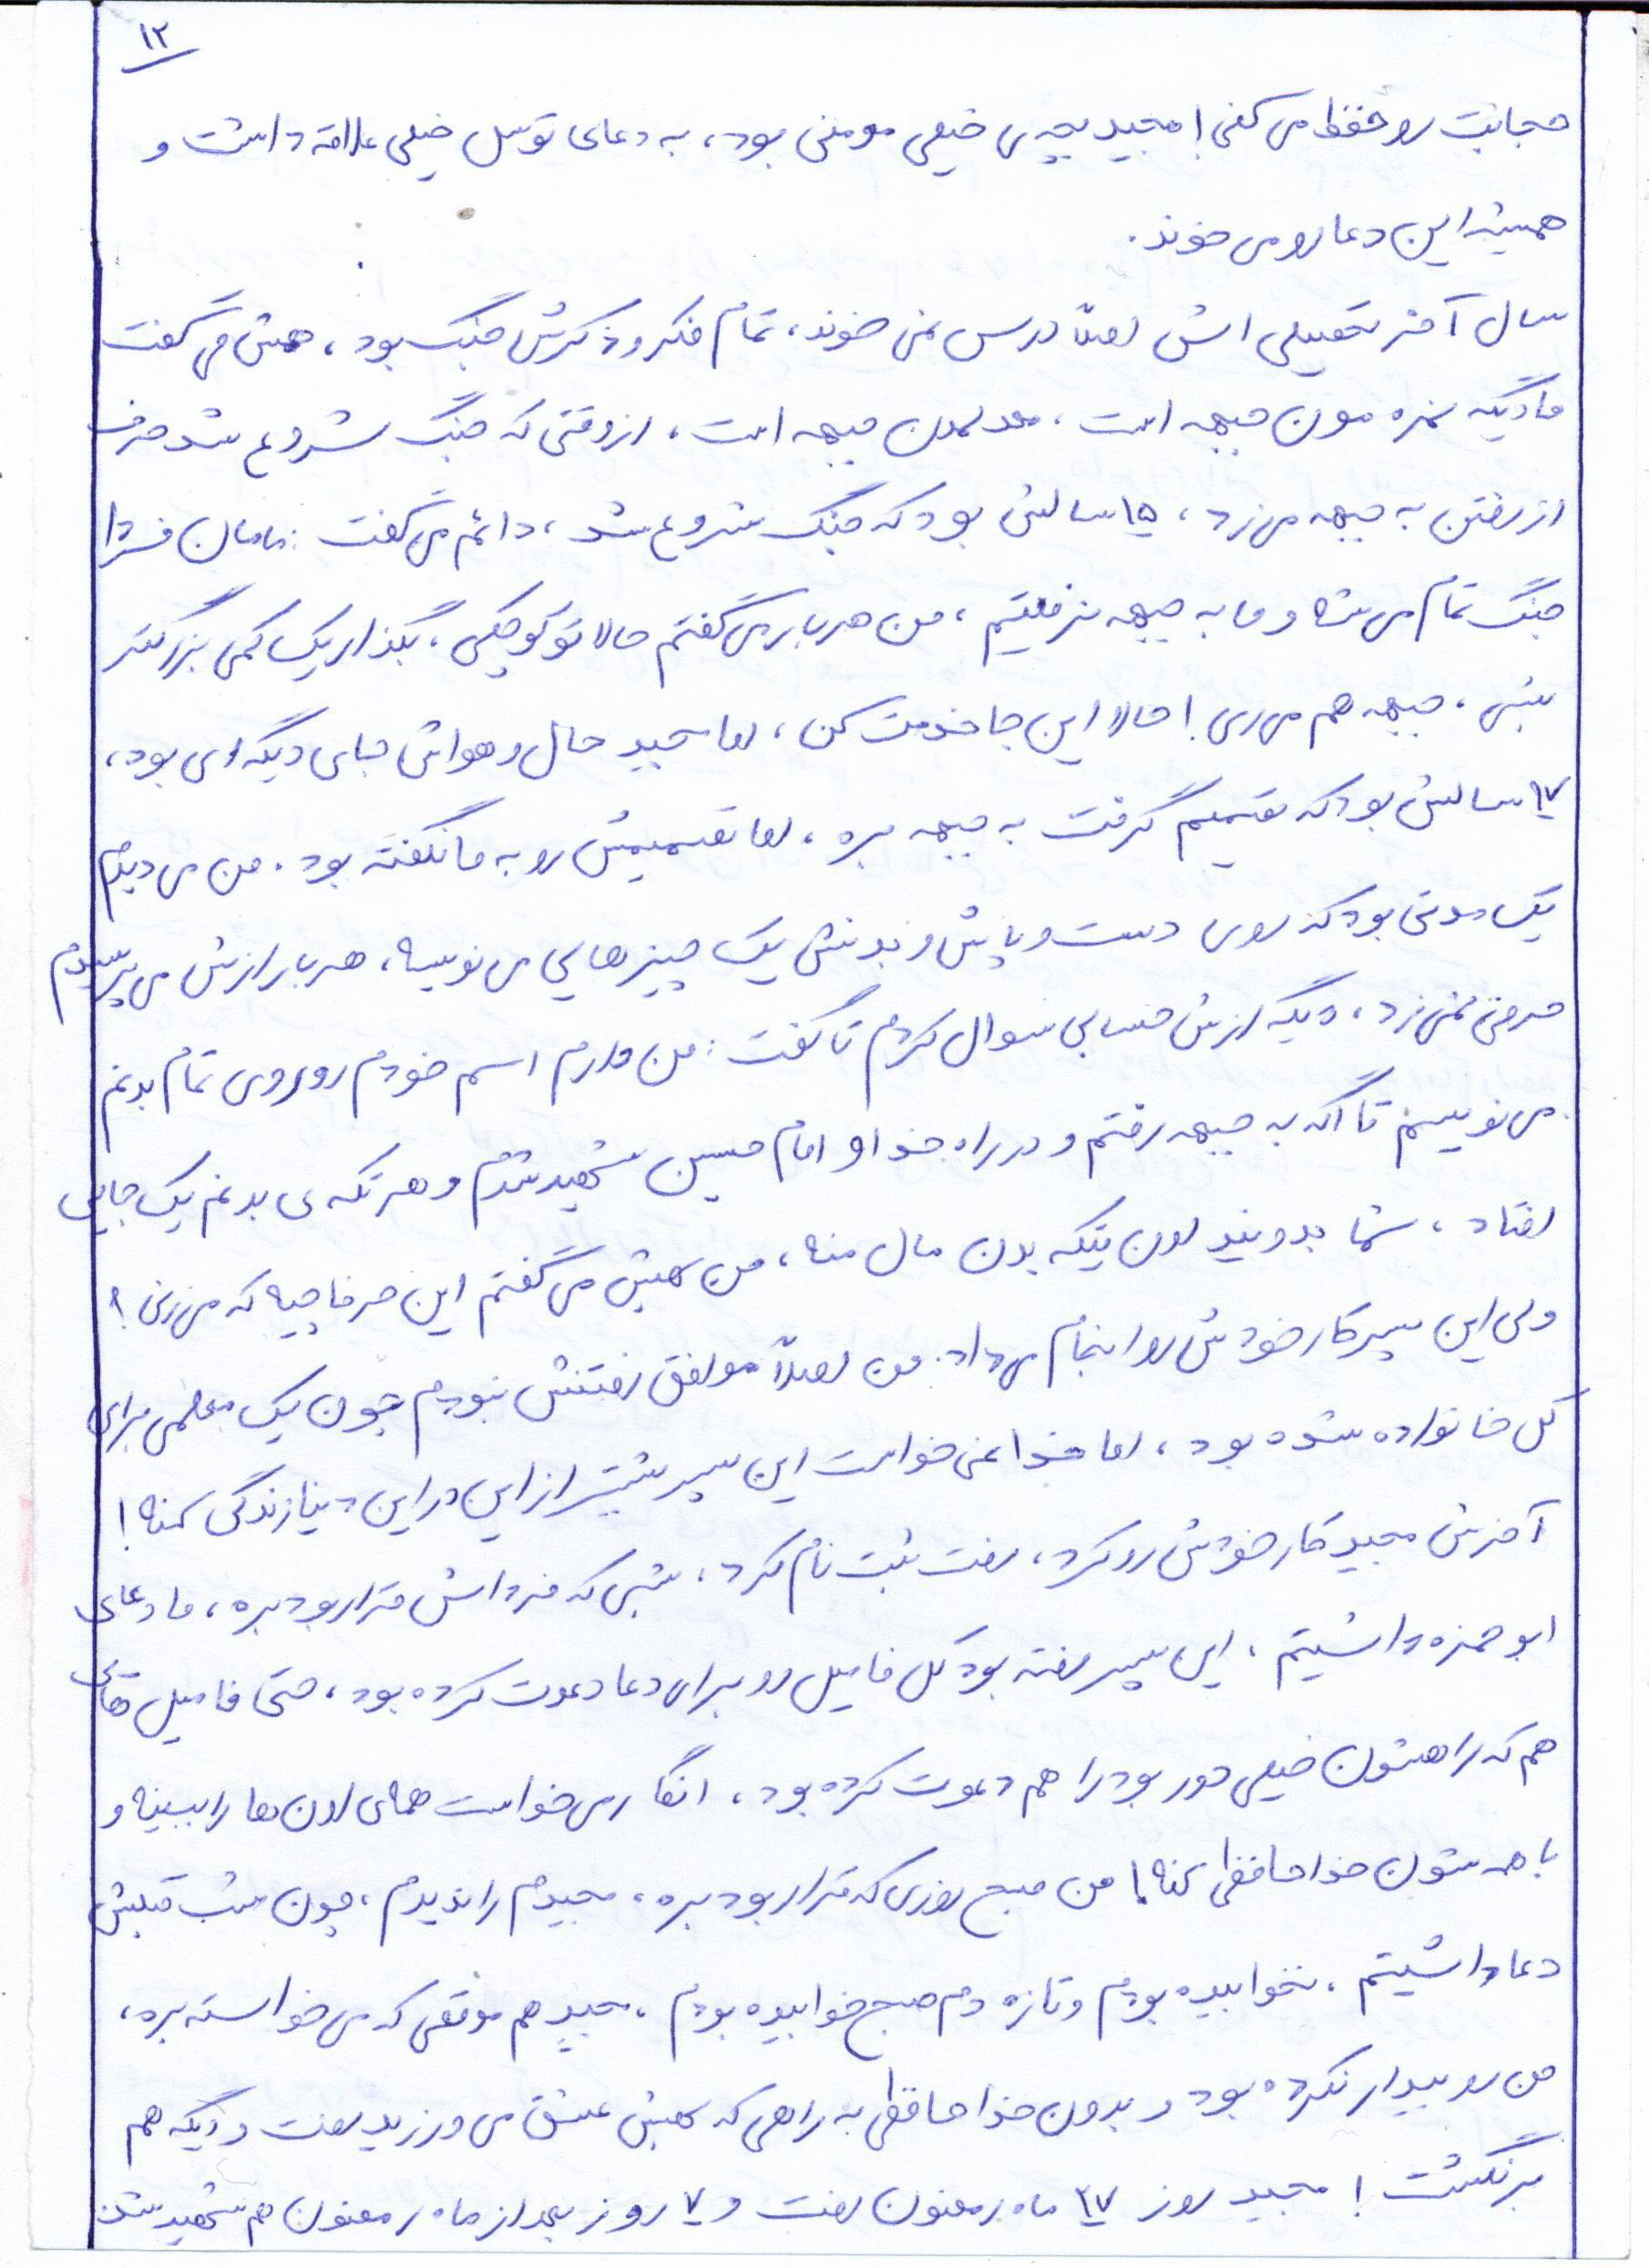 ۱۲
حجابت رو حفظ می کنی! مجید بچه ی خیلی مومنی بود، به دعای توسل خیلی علاقه داشت و
همیشه این دعا رو می خوند.
سال آخر تحصیلی اش اصلاً درس نمی خوند، تمام فکر و ذکرش جنگ بود، همش می گفت
ما دیگه نمره مون جبهه است، معدلمون جبهه است، از وقتی که جنگ شروع شد حرف
از رفتن به جبهه می زد، ۱۵ سالش بود که جنگ شروع شد، دائم می گفت: مامان فردا
جنگ تمام می شه و ما به جبهه نرفتیم، من هر بار می گفتم حالا تو کوچکی، بگذار یک کمی بزرگتر
بشی، جبهه هم می ری! حالا این جا خدمت کن، اما مجید حال و هواش جای دیگه ای بود،
۱۷ سالش بود که تصمیم گرفت به جبهه بره، اما تصمیمش رو به ما نگفته بود. من می دیدم
یک مدتی بود که روی دست و پاش و بدنش یک چیزهایی می نویسه، هر بار ازش می پرسیدم
حرفی نمی زد، دیگه ازش حسابی سوال کردم تا گفت: من دارم اسم خودم رو روی تمام بدنم
می نویسم تا اگه به جبهه رفتم و در راه خدا و امام حسین شهید شدم و هر تکه ی بدنم یک جایی
افتاد، شما بدونید اون تیکه بدن مال منه، من بهش می گفتم این حرفا چیه که می زنی؟
ولی این پسر کار خودش رو انجام می داد. من اصلاً موافق رفتنش نبودم چون یک معلمی برای
کل خانواده شده بود، اما خدا نمی خواست این پسر بیشتر از این در این دنیا زندگی کنه!
آخرش مجید کار خودش رو کرد، رفت ثبت نام کرد، شبی که فرداش قرار بود بره، ما دعای
ابو حمزه داشتیم، این پسر رفته بود کل فامیل رو برای دعا دعوت کرده بود، حتی فامیل هایی
هم که راهشون خیلی دور بود را هم دعوت کرده بود، انگار می خواست همه ی اون ها را ببینه و
با همه شون خداحافظی کنه! من صبح روزی که قرار بود بره، مجیدم را ندیدم، چون شب قبلش
دعا داشتیم، نخوابیده بودم و تازه دم صبح خوابیده بودم، مجید هم موقعی که می خواسته بره،
من رو بیدار نکرده بود و بدون خداحافظی به راهی که بهش عشق می ورزید رفت و دیگه هم
برنگشت! مجید روز ۲۷ ماه رمضون رفت و ۷ روز بعد از ماه رمضون هم شهید شد.